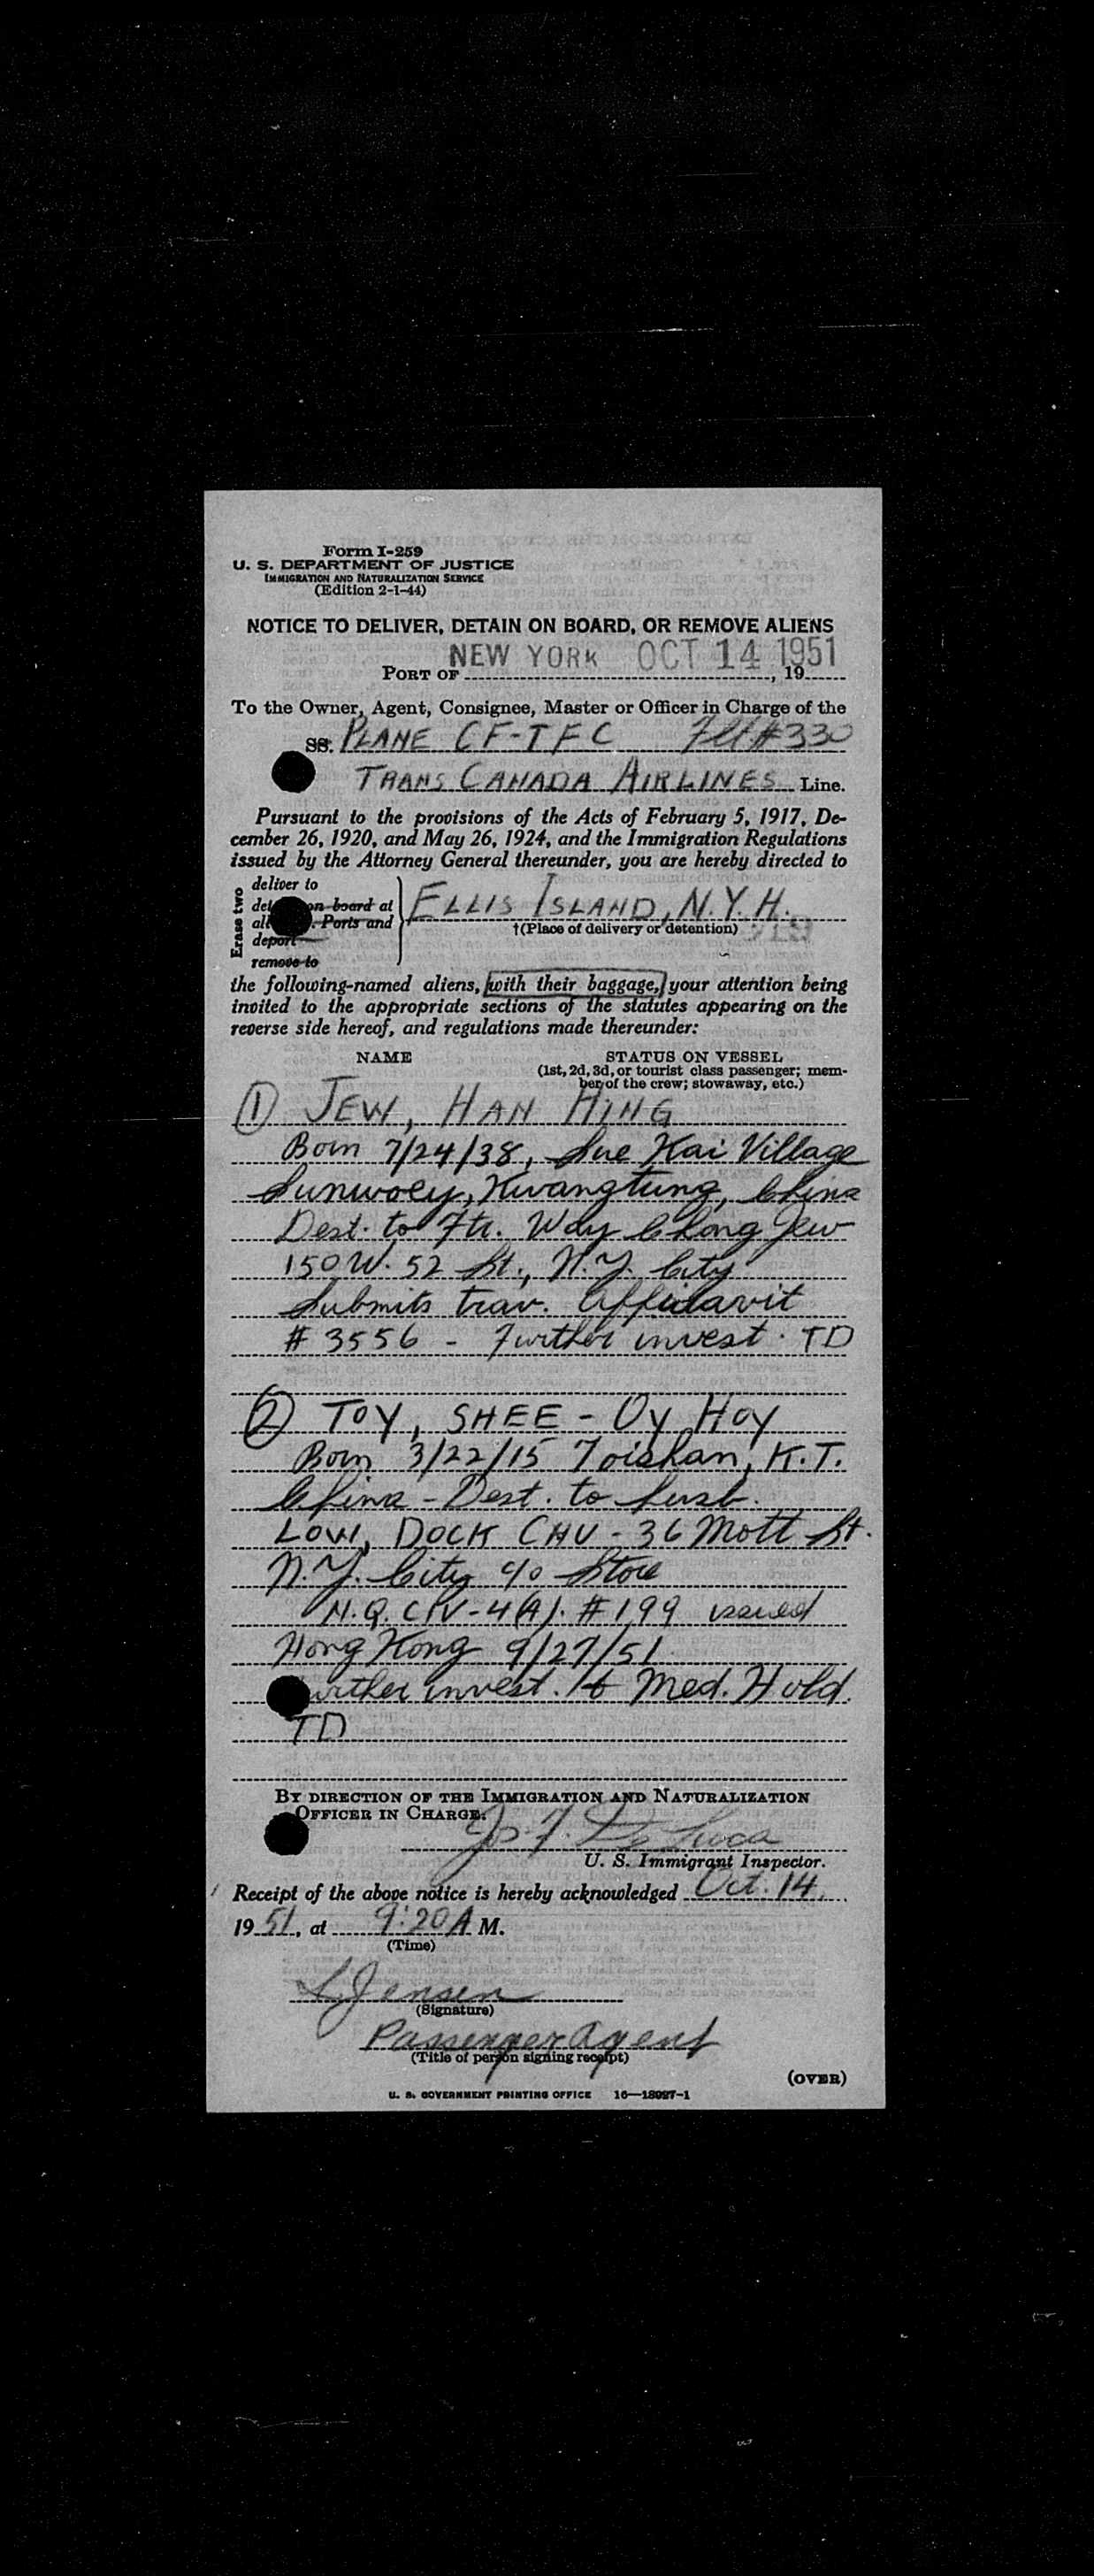 Form I-259
U. S. DEPARTMENT OF JUSTICE
IMMIGRATION AND NATURALIZATION SERVICE
(Edition 2-1-44)
NOTICE TO DELIVER, DETAIN ON BOARD, OR REMOVE ALIENS
PORT OF NEW YORK OCT 14 1951, 19
To the Owner, Agent, Consignee, Master or Officer in Charge of the
SS. PLANE CF-TFC Flt #330
TRANS CANADA AIRLINES Line.
Pursuant to the provisions of the Acts of February 5, 1917, De-
cember 26, 1920, and May 26, 1924, and the Immigration Regulations
issued by the Attorney General thereunder, you are hereby directed to
Erase two
deliver to
on board at
Ports and
deport
remove to
ELLIS ISLAND, N.Y.H.
†(Place of delivery or detention)
the following-named aliens, with their baggage, your attention being
invited to the appropriate sections of the statutes appearing on the
reverse side hereof, and regulations made thereunder:
NAME STATUS ON VESSEL
(1st, 2d, 3d, or tourist class passenger; mem-
ber of the crew; stowaway, etc.)
① JEW, HAN HING
Born 7/24/38, Sue Kai Village
Sunwoey, Kwangtung, China
Dest. to Ftr. Way Chong Jew
150 W. 52 St., N.Y. City
Submits trav. Affidavit
# 3556 - Further invest. TD
② TOY, SHEE - Oy Hoy
Born 3/22/15 Toishan, K.T.
China - Dest. to husb.
LOW, DOCK CHU - 36 Mott St.
N.Y. City c/o Store
N.Q. CIV-4(A). #199 issued
Hong Kong 9/27/51
invest. Med. Hold.
TD
BY DIRECTION OF THE IMMIGRATION AND NATURALIZATION
OFFICER IN CHARGE.
De Luca
U. S. Immigrant Inspector.
Receipt of the above notice is hereby acknowledged Oct. 14,
19 51, at 9:20 A M.
(Time)
L Jensen
(Signature)
Passenger Agent
(Title of person signing receipt)
(OVER)
U. S. GOVERNMENT PRINTING OFFICE 16—18027-1